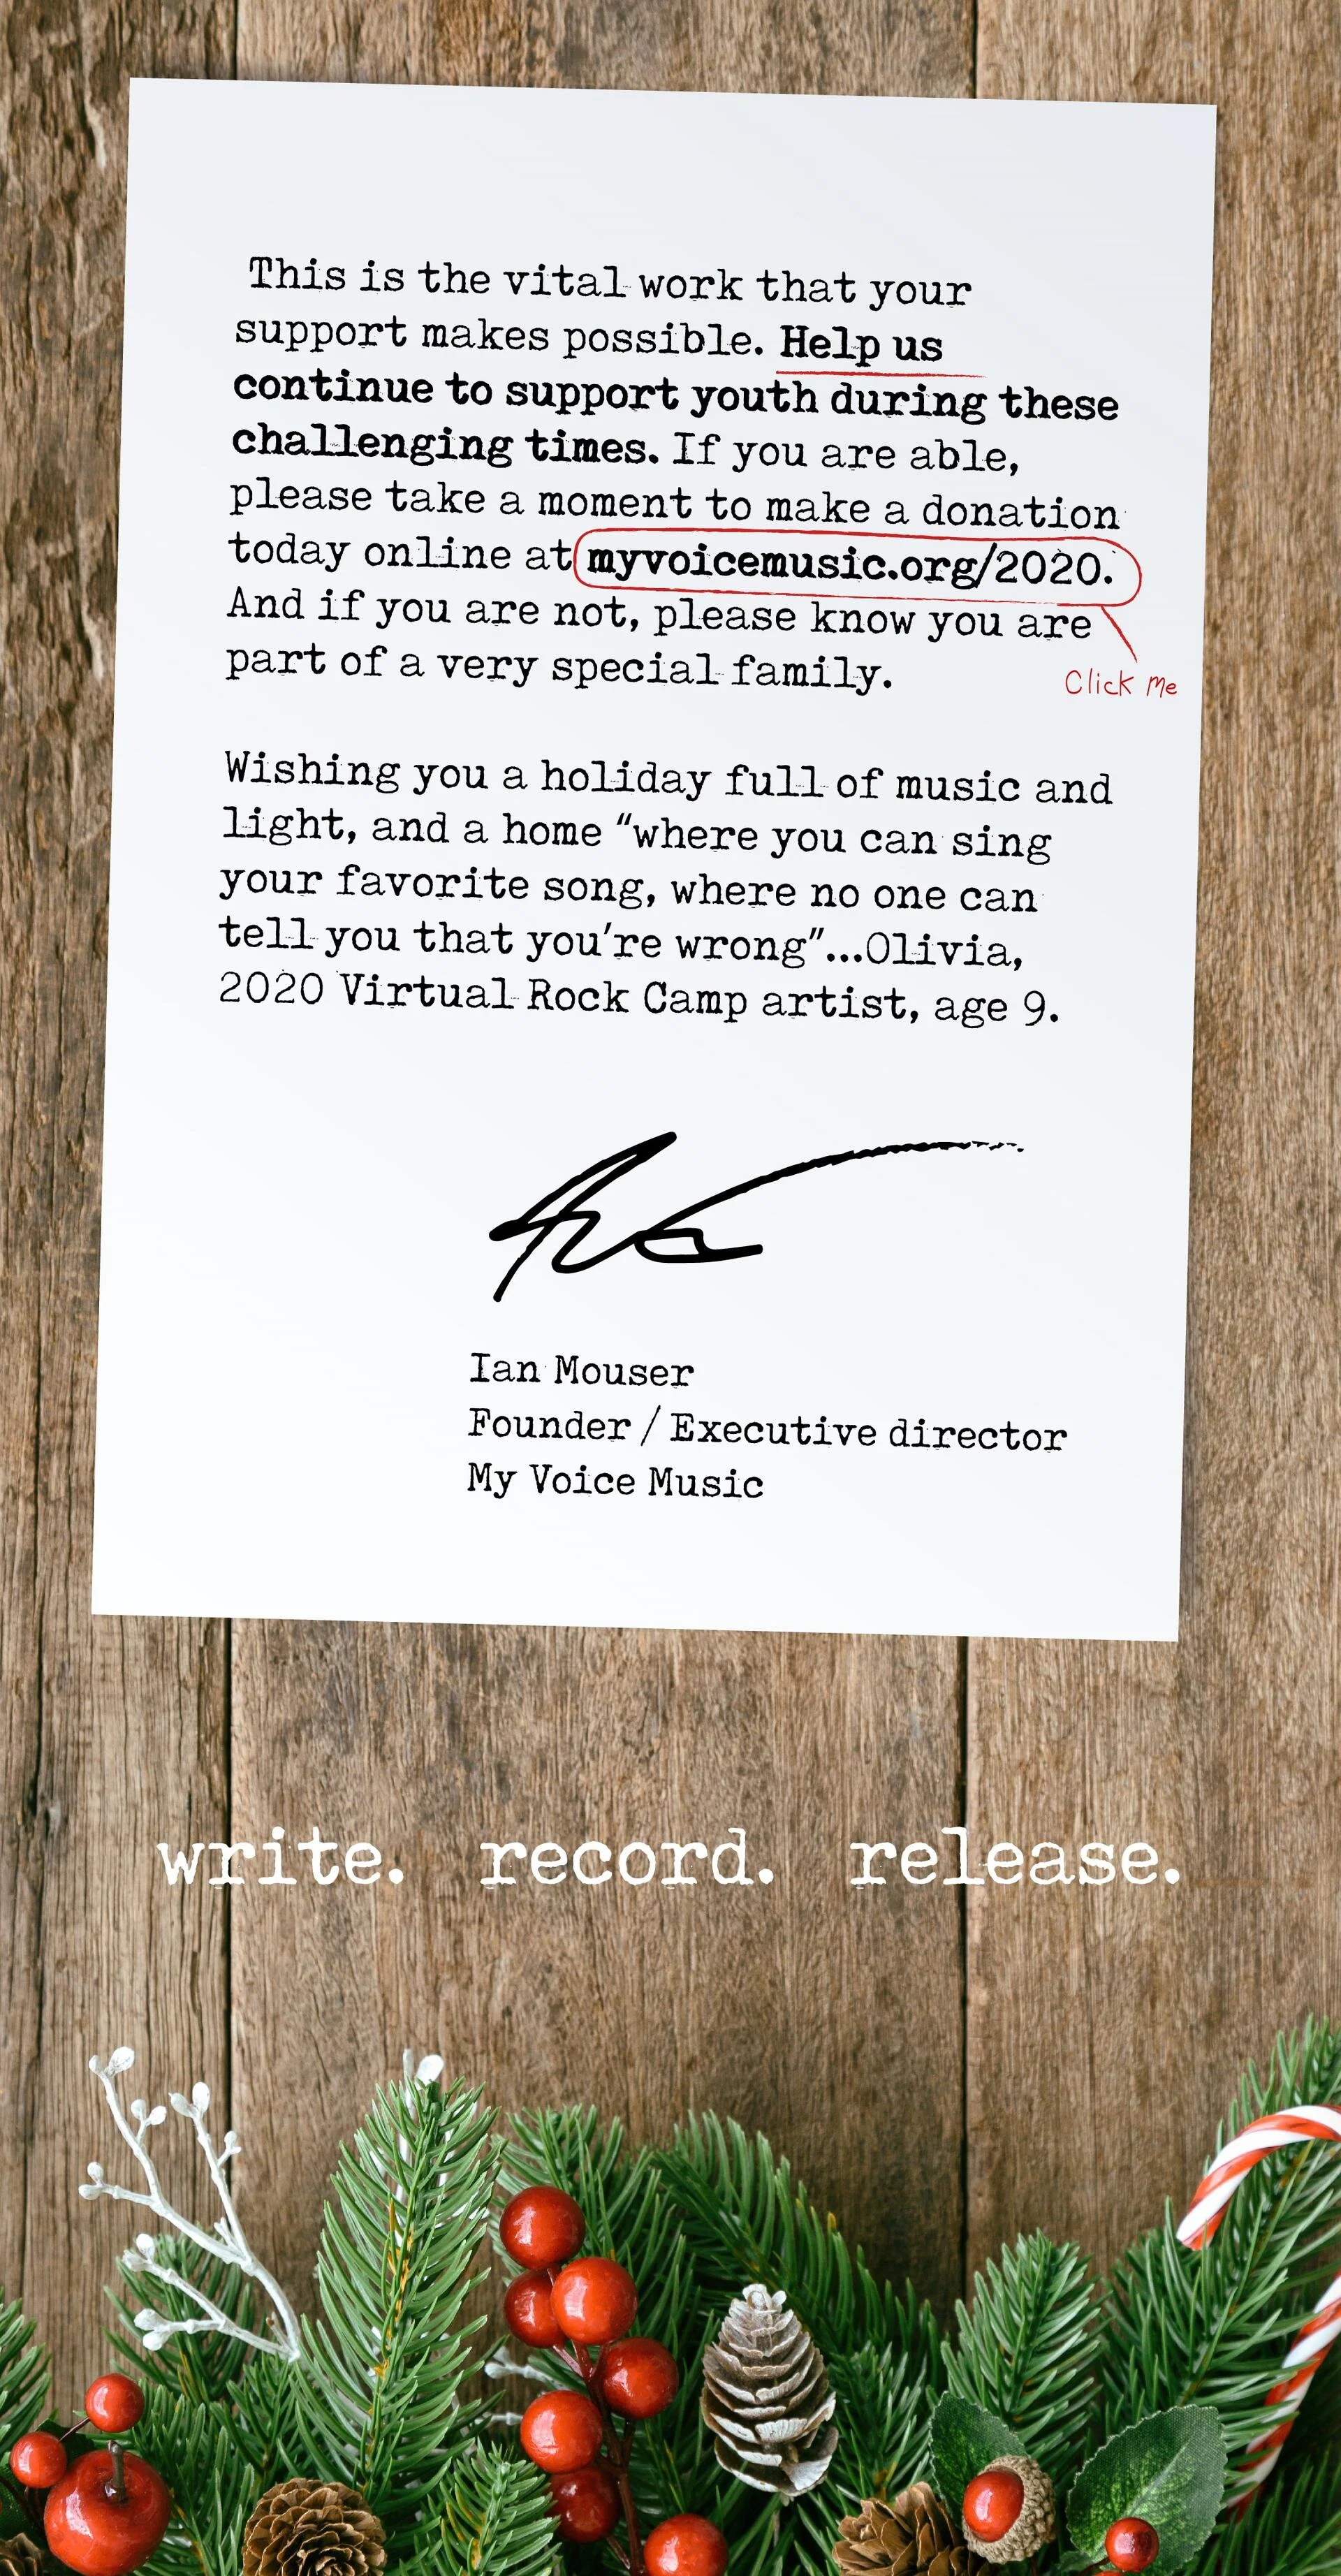 This is the vital work that your
support makes possible. Help us
continue to support youth during these
challenging times. If you are able,
please take a moment to make a donation
today online at myvoicemusic.org/2020.
And if you are not, please know you are
part of a very special family.
Click Me
Wishing you a holiday full of music and
light, and a home “where you can sing
your favorite song, where no one can
tell you that you’re wrong”...Olivia,
2020 Virtual Rock Camp artist, age 9.
Ian Mouser
Founder / Executive director
My Voice Music
write. record. release.